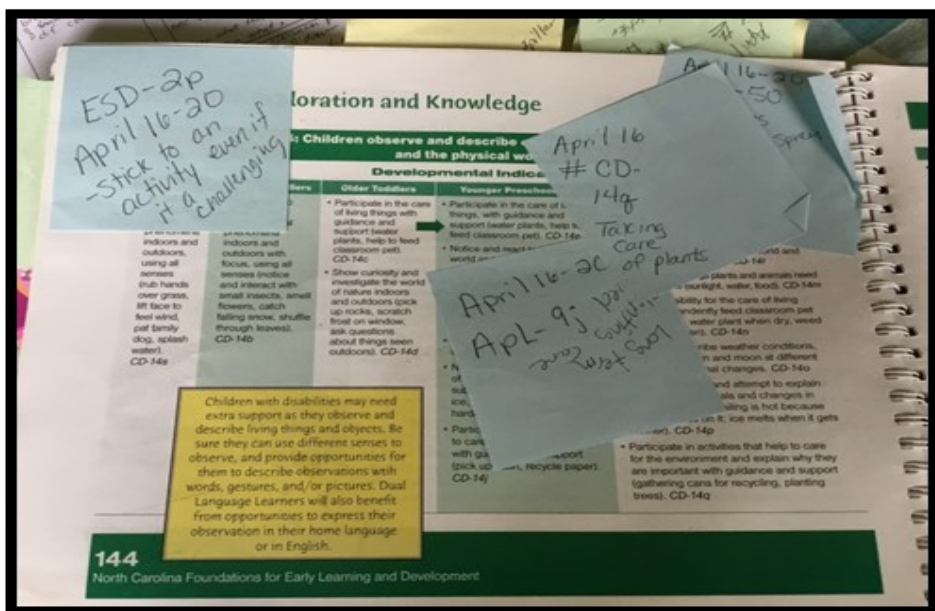 ESD-2p
April 16-20
-Stick to an
activity even if
it a challenging
April 16-20
-50
Spread
April 16
# CD-
14q
Taking
Care
of plants
April 16-20
ApL-9j
long term care
loration and Knowledge
: Children observe and describe
and the physical wo
Developmental Indica
lers
Older Toddlers
Younger Preschoo
phenomena
indoors and
outdoors,
using all
senses
(rub hands
over grass,
lift face to
feel wind,
pat family
dog, splash
water).
CD-14a
phenomena
indoors and
outdoors with
focus, using all
senses (notice
and interact with
small insects, smell
flowers, catch
falling snow, shuffle
through leaves).
CD-14b
• Participate in the care
of living things with
guidance and
support (water
plants, help to feed
classroom pet).
CD-14c
• Show curiosity and
investigate the world
of nature indoors
and outdoors (pick
up rocks, scratch
frost on window,
ask questions
about things seen
outdoors). CD-14d
• Participate in the care of
things, with guidance and
support (water plants, help
feed classroom pet). CD-14e
• Notice and react
world
of
sub
ice,
hard
• Partic
to care
with gu port
(pick up recycle paper).
CD-14j
plants and animals need
(sunlight, water, food). CD-14m
ibility for the care of living
ndently feed classroom pet
water plant when dry, weed
CD-14n
ribe weather conditions,
n and moon at different
al changes. CD-14o
and attempt to explain
als and changes in
iling is hot because
on it; ice melts when it gets
CD-14p
• Participate in activities that help to care
for the environment and explain why they
are important with guidance and support
(gathering cans for recycling, planting
trees). CD-14q
Children with disabilities may need
extra support as they observe and
describe living things and objects. Be
sure they can use different senses to
observe, and provide opportunities for
them to describe observations wtih
words, gestures, and/or pictures. Dual
Language Learners will also benefit
from opportunities to express their
observation in their home language
or in English.
144
North Carolina Foundations for Early Learning and Development